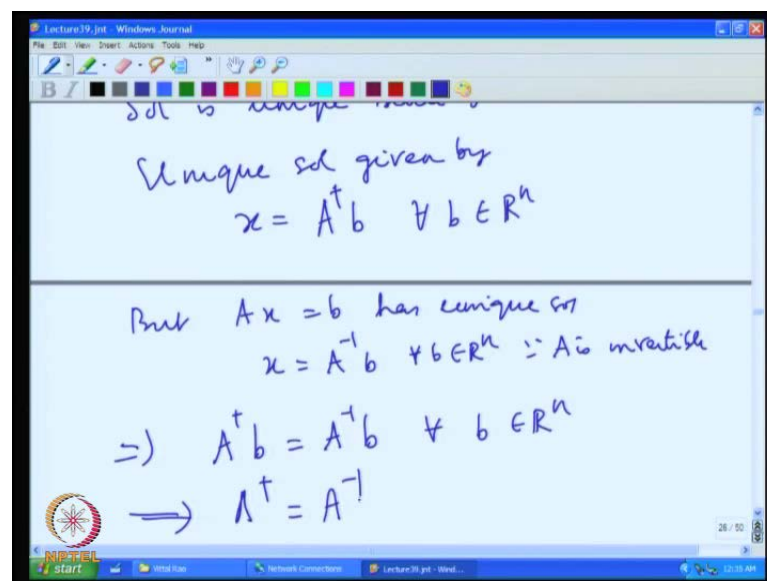 Lecture39.jnt - Windows Journal
File Edit View Insert Actions Tools Help
B I
Sol is unique
Unique sol given by
x = A†b ∀ b ∈ Rⁿ
But Ax = b has unique sol
x = A⁻¹b ∀ b ∈ Rⁿ ∵ A is invertible
=) A†b = A⁻¹b ∀ b ∈ Rⁿ
⟹ A† = A⁻¹
26 / 50
NPTEL
start Vittal Rao Network Connections Lecture39.jnt - Wind... 12:35 AM